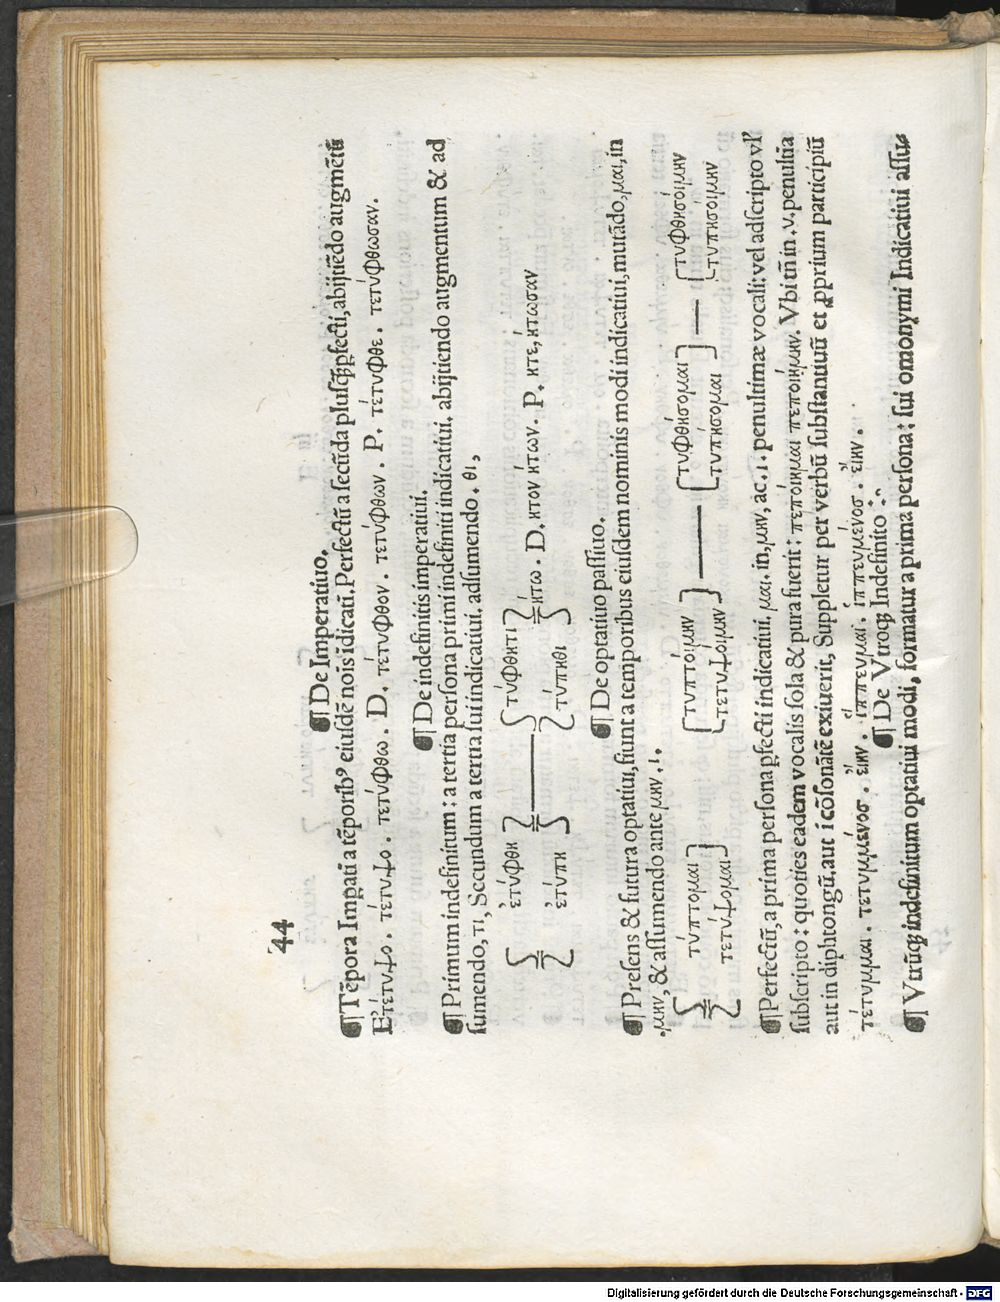 44
¶De Imperatiuo.
¶Tēpora Impatī a tēporib⁹ eiusdē noīs īdicatī. Perfectū a secūda plusq̄pfecti, abijciēdo augmētū
E'τέτυψο. τέτυψο. τετύφθω. D. τέτυφθον. τετύφθων. P. τέτυφθε. τετύφθωσαν.
¶De indefinitis imperatiui.
¶Primum indefinitum: a tertia persona primi indefiniti indicatiui. abijciendo augmentum & ad
sumendo, τι, Secundum a tertia sui indicatiui. adsumendo. θι,
ἐτύφθη τύφθητι
ήτω. D. ητον ήτων. P. ητε, ήτωσαν
ἐτύπη τύπηθι
¶De optatiuo passiuo.
¶Presens & futura optatiui, fiunt a temporibus eiusdem nominis modi indicatiui, mutādo, μαι, in
μην, & assumendo ante μην. ι.
τύπτομαι τυπτοίμην τυφθήσομαι τυφθησοίμην
τετύψομαι τετυψοίμην τυπήσομαι τυπησοίμην
¶Perfectū, a prima persona pfecti indicatiui. μαι. in, μην, ac. ι. penultimæ vocali: vel adscripto vl'
subscripto: quoties eadem vocalis sola & pura fuerit: πεποίημαι πεποιήμην. Vbi tn̄ in. v. penultīa
aut in diphtongū, aut ī cōsonātē exiuerit, Suppletur per verbū substantiuū et ꝓprium participiū
τέτυμμαι. τετυμμένοσ. εἴην. ἵππευμαι. ἱππευμένοσ. εἴην.
¶De Vtroq; Indefinito
¶Vtrūq; indefinitum optatiui modi, formatur a prima persona: sui omonymi Indicatiui assu⸗
Digitalisierung gefördert durch die Deutsche Forschungsgemeinschaft - DFG